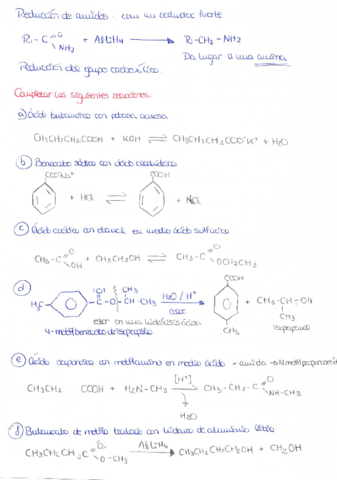 Reducción de amidas: con un reductor fuerte
R-C=O NH₂ + AlLiH₄ → R-CH₂-NH₂
Da lugar a una amina
Reducción del grupo carboxílico.
Completar las siguientes reacciones.
a) Ácido butanoico con potasa acuosa
CH₃CH₂CH₂COOH + KOH ⇌ CH₃CH₂CH₂COO⁻K⁺ + H₂O
b) Benzoato sódico con ácido clorhídrico
COO⁻Na⁺ + HCl ⇌ COOH + NaCl
c) Ácido acético con etanol en medio ácido sulfúrico
CH₃-C=O OH + CH₃CH₂OH ⇌ CH₃-C=O OCH₂CH₃
d) H₃C C=O O CH-CH₃ CH₃ H₂O/H⁺ COOH CH₃ + CH₃-CH-OH CH₃
ester con una hidrólisis ácida
4-metilbenzoato de isopropilo
isopropanol
e) Ácido propanoico con metilamina en medio ácido → amida → N-metilpropanamida
CH₃CH₂ COOH + H₂N-CH₃ [H⁺] → CH₃-CH₂-C=O NH-CH₃
H₂O
f) Butanoato de metilo tratado con hidruro de aluminio y litio
CH₃CH₂CH₂C=O O-CH₃ AlLiH₄ → CH₃CH₂CH₂CH₂OH + CH₃OH